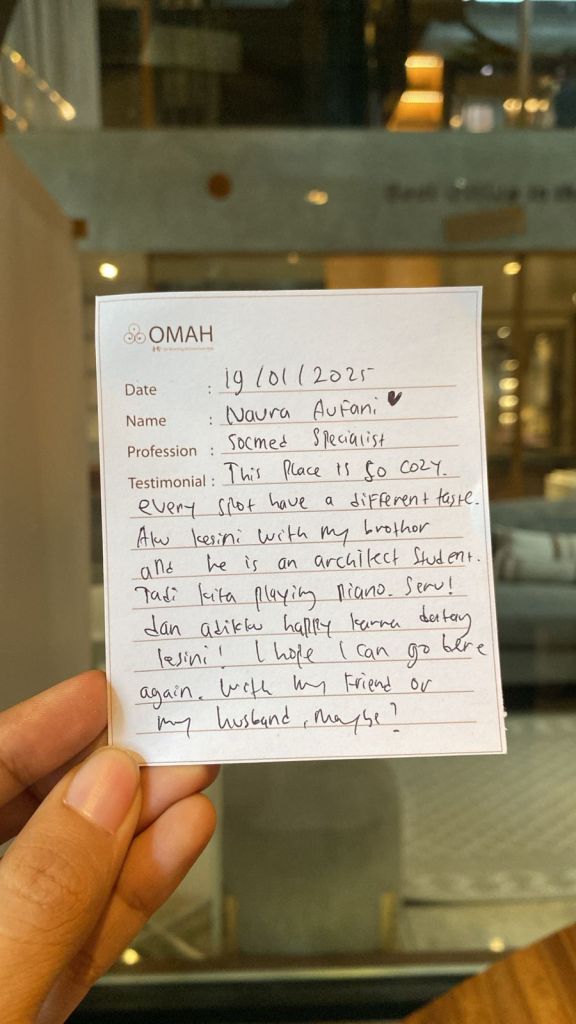 OMAH
Date : 19/01/2025
Name : Naura Aufani ♥
Profession : Socmed Specialist
Testimonial : This place is so cozy.
every spot have a different taste.
Aku kesini with my brothor
and he is an architect student.
Tadi kita playing piano. Seru!
dan adikku happy karna datang
kesini! I hope I can go here
again. With my Friend or
my husband, maybe?